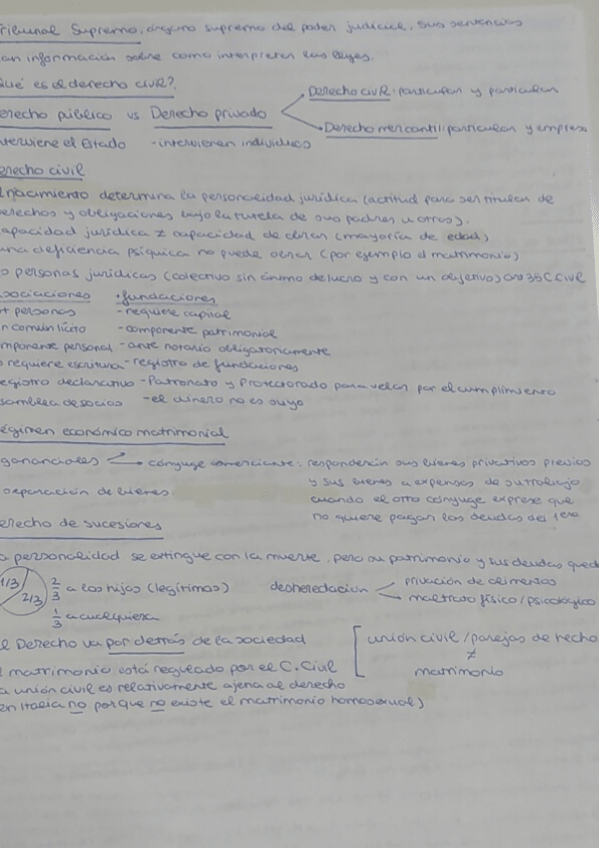 ribunal Supremo, órgano supremo del poder judicial, sus sentencias
an información sobre como interpretar las leyes.
ué es el derecho civil?
Derecho civil: particular y particular
erecho público vs Derecho privado
Derecho mercantil: particular y empresa
nterviene el Estado - intervienen individuos
erecho civil
l nacimiento determina la personalidad jurídica (actitud para ser titular de
erechos y obligaciones bajo la tutela de sus padres u otros).
apacidad jurídica ≠ capacidad de obrar (mayoría de edad)
na deficiencia psíquica no puede obrar (por ejemplo el matrimonio)
personas jurídicas (colectivo sin ánimo de lucro y con un objetivo) art 35 C Civil
sociaciones • fundaciones
+ personas - requiere capital
n común lícito - componente patrimonial
mponente personal - ante notario obligatoriamente
o requiere escritura - registro de fundaciones
egistro declarativo - Patronato y Protectorado para velar por el cumplimiento
samblea de socios - el dinero no es suyo
égimen económico matrimonial
gananciales cónyuge comerciante: responderán sus bienes privativos previos
y sus bienes a expensas de su trabajo
separación de bienes cuando el otro cónyuge exprese que
no quiere pagar las deudas del 1ero
erecho de sucesiones
a personalidad se extingue con la muerte, pero su patrimonio y sus deudas qued
1/3 2/3 2/3 a los hijos (legítimas) desheredación privación de alimentos
maltrato físico/psicológico
1/3 a cualquiera
l Derecho va por detrás de la sociedad [ unión civil/parejas de hecho
≠
l matrimonio está regulado por el C.Civil matrimonio
a unión civil es relativamente ajena al derecho
en Italia no porque no existe el matrimonio homosexual)